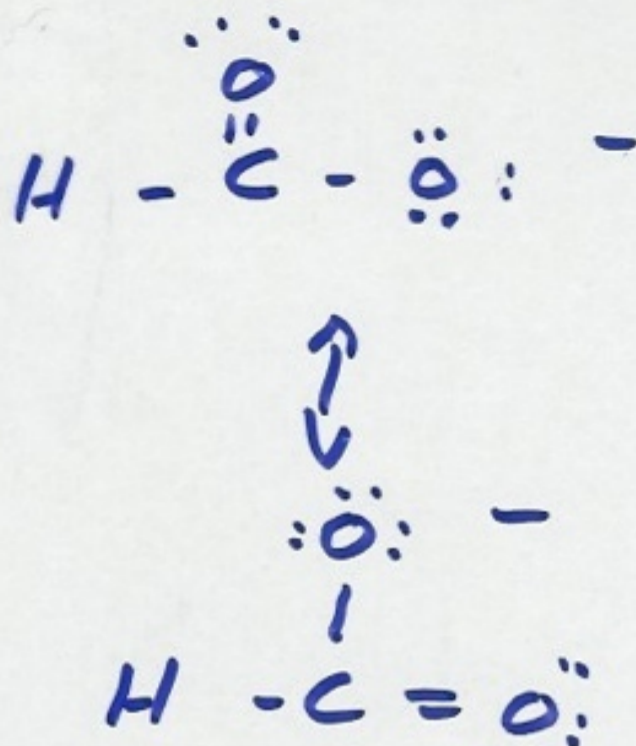 O
H - C - O : -
O -
H - C = O